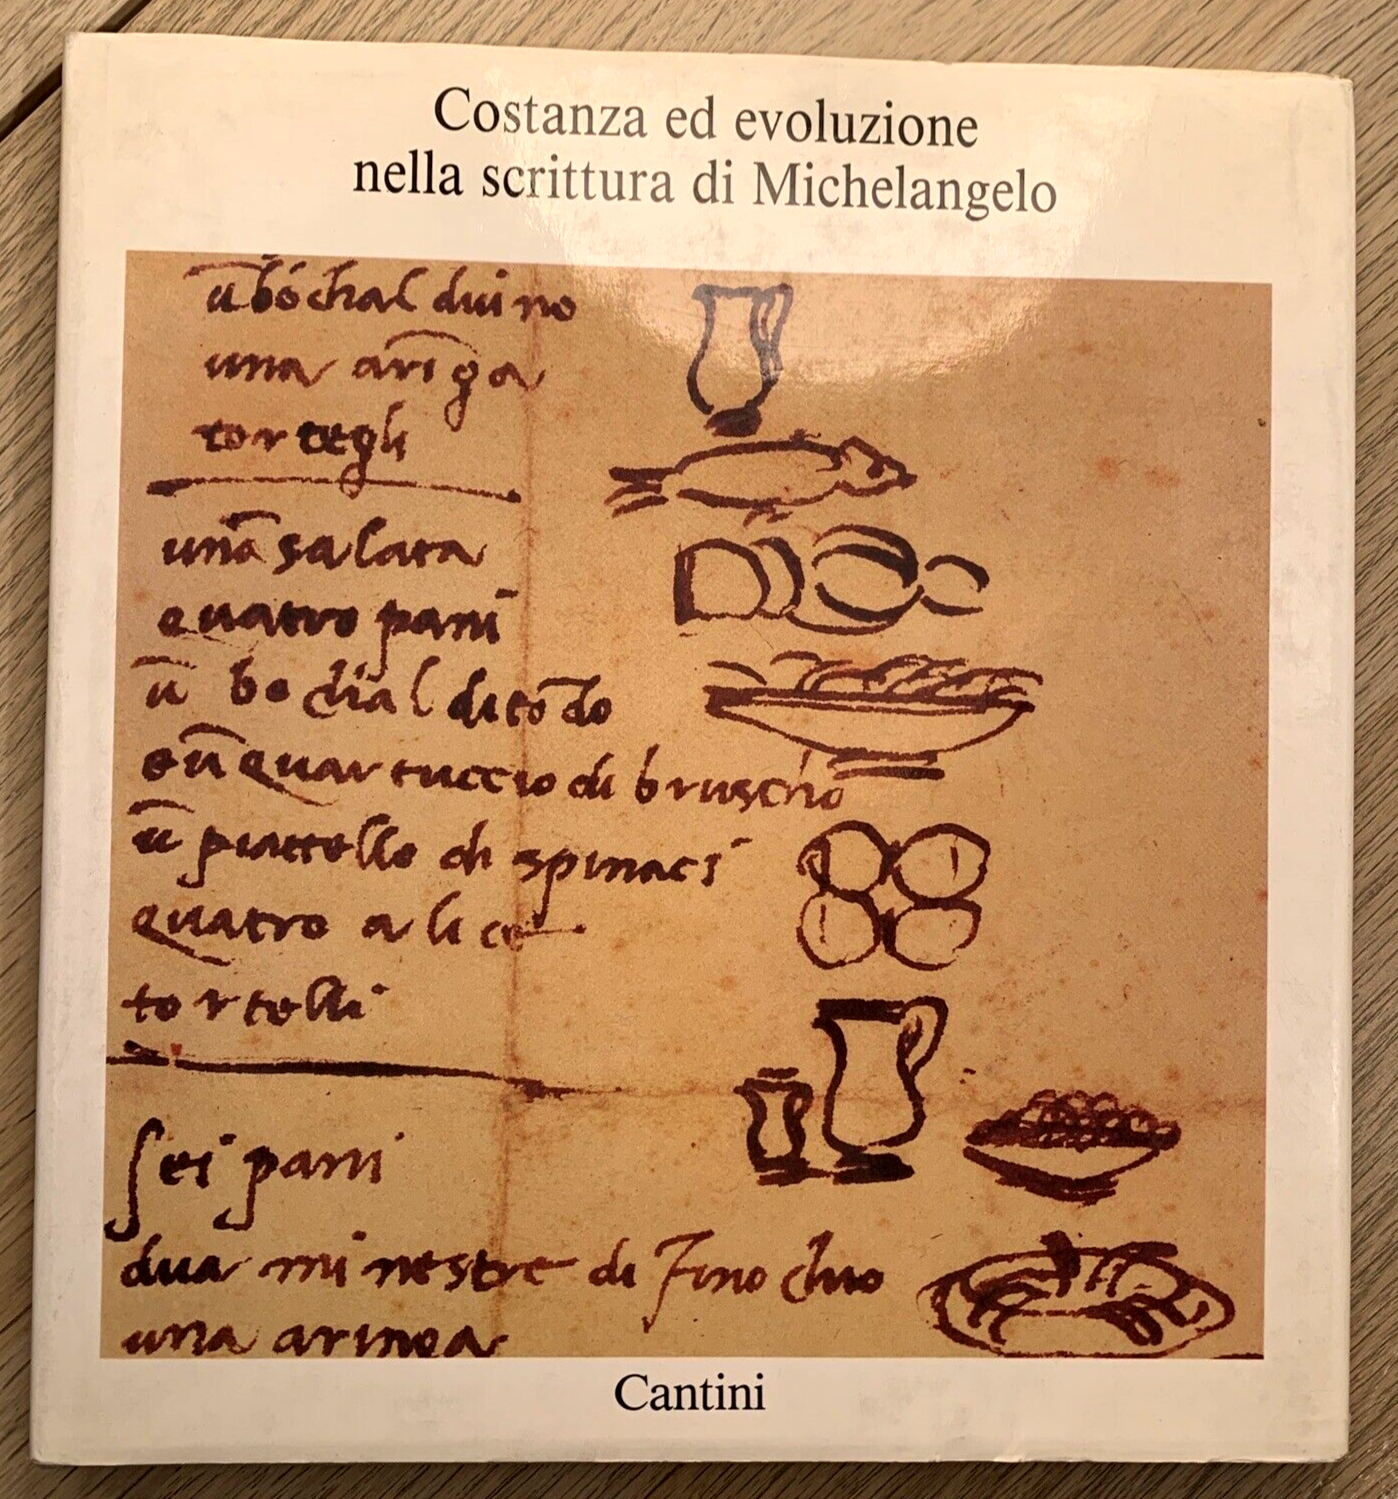 Costanza ed evoluzione
nella scrittura di Michelangelo
ū bochal duino
una arīga
tortegli
una salata
quatro pani
ū bochal di tōdo
e ū quartuccio di bruscho
ū piattello di spinaci
quatro alice
tortelli
sei pani
dua minestre di finochio
una aringa
Cantini